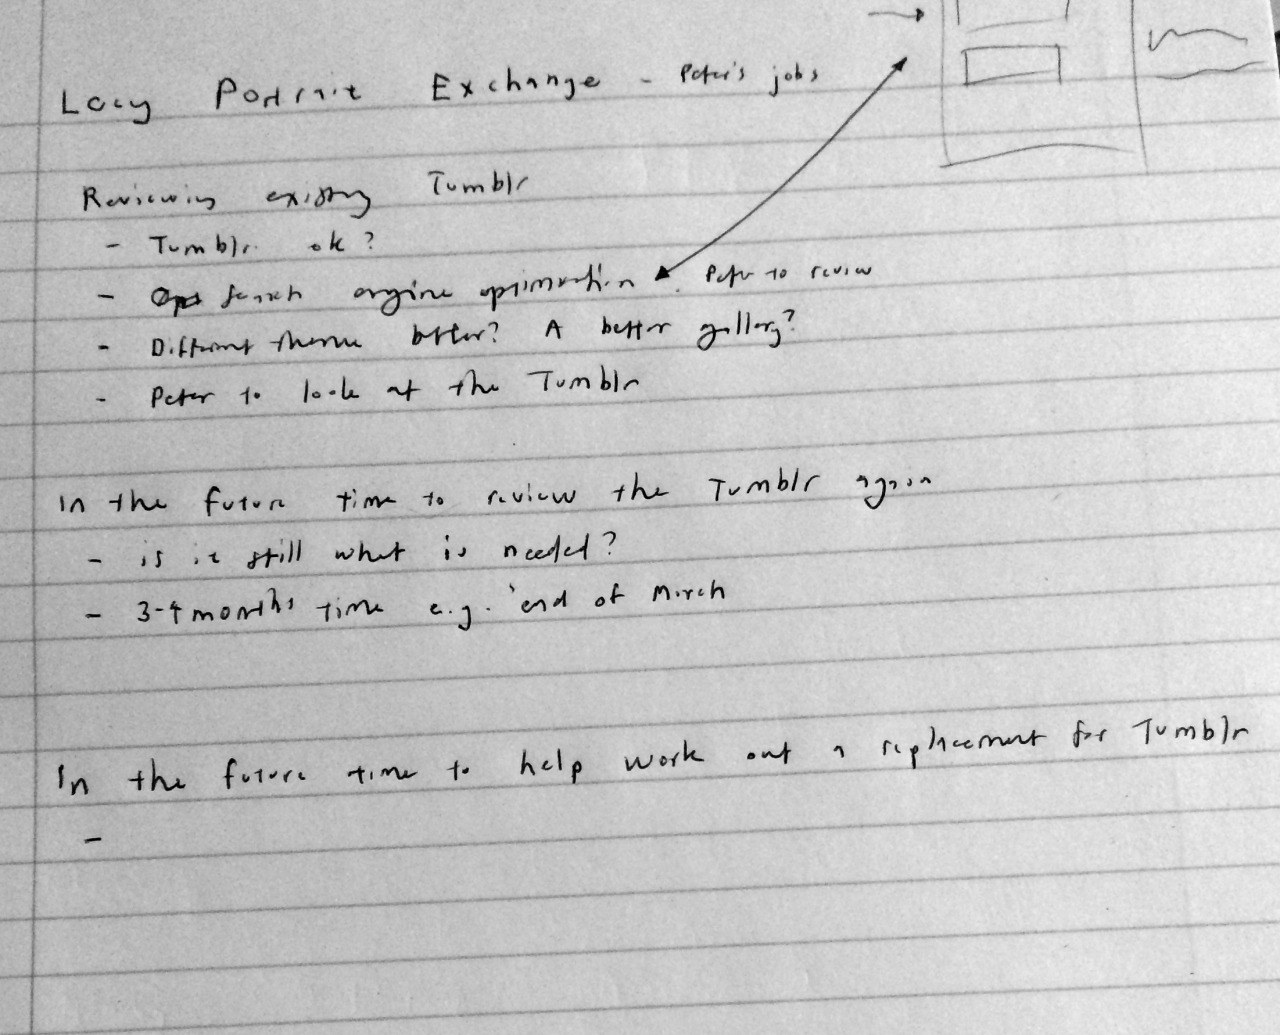 Lacy Portrait Exchange - Peter's jobs
Reviewing existing Tumblr
- Tumblr ok?
- Search engine optimisation. Peter to review
- Different theme better? A better gallery?
- Peter to look at the Tumblr
In the future time to review the Tumblr again
- is it still what is needed?
- 3-4 months time e.g. end of March
In the future time to help work out a replacement for Tumblr
-